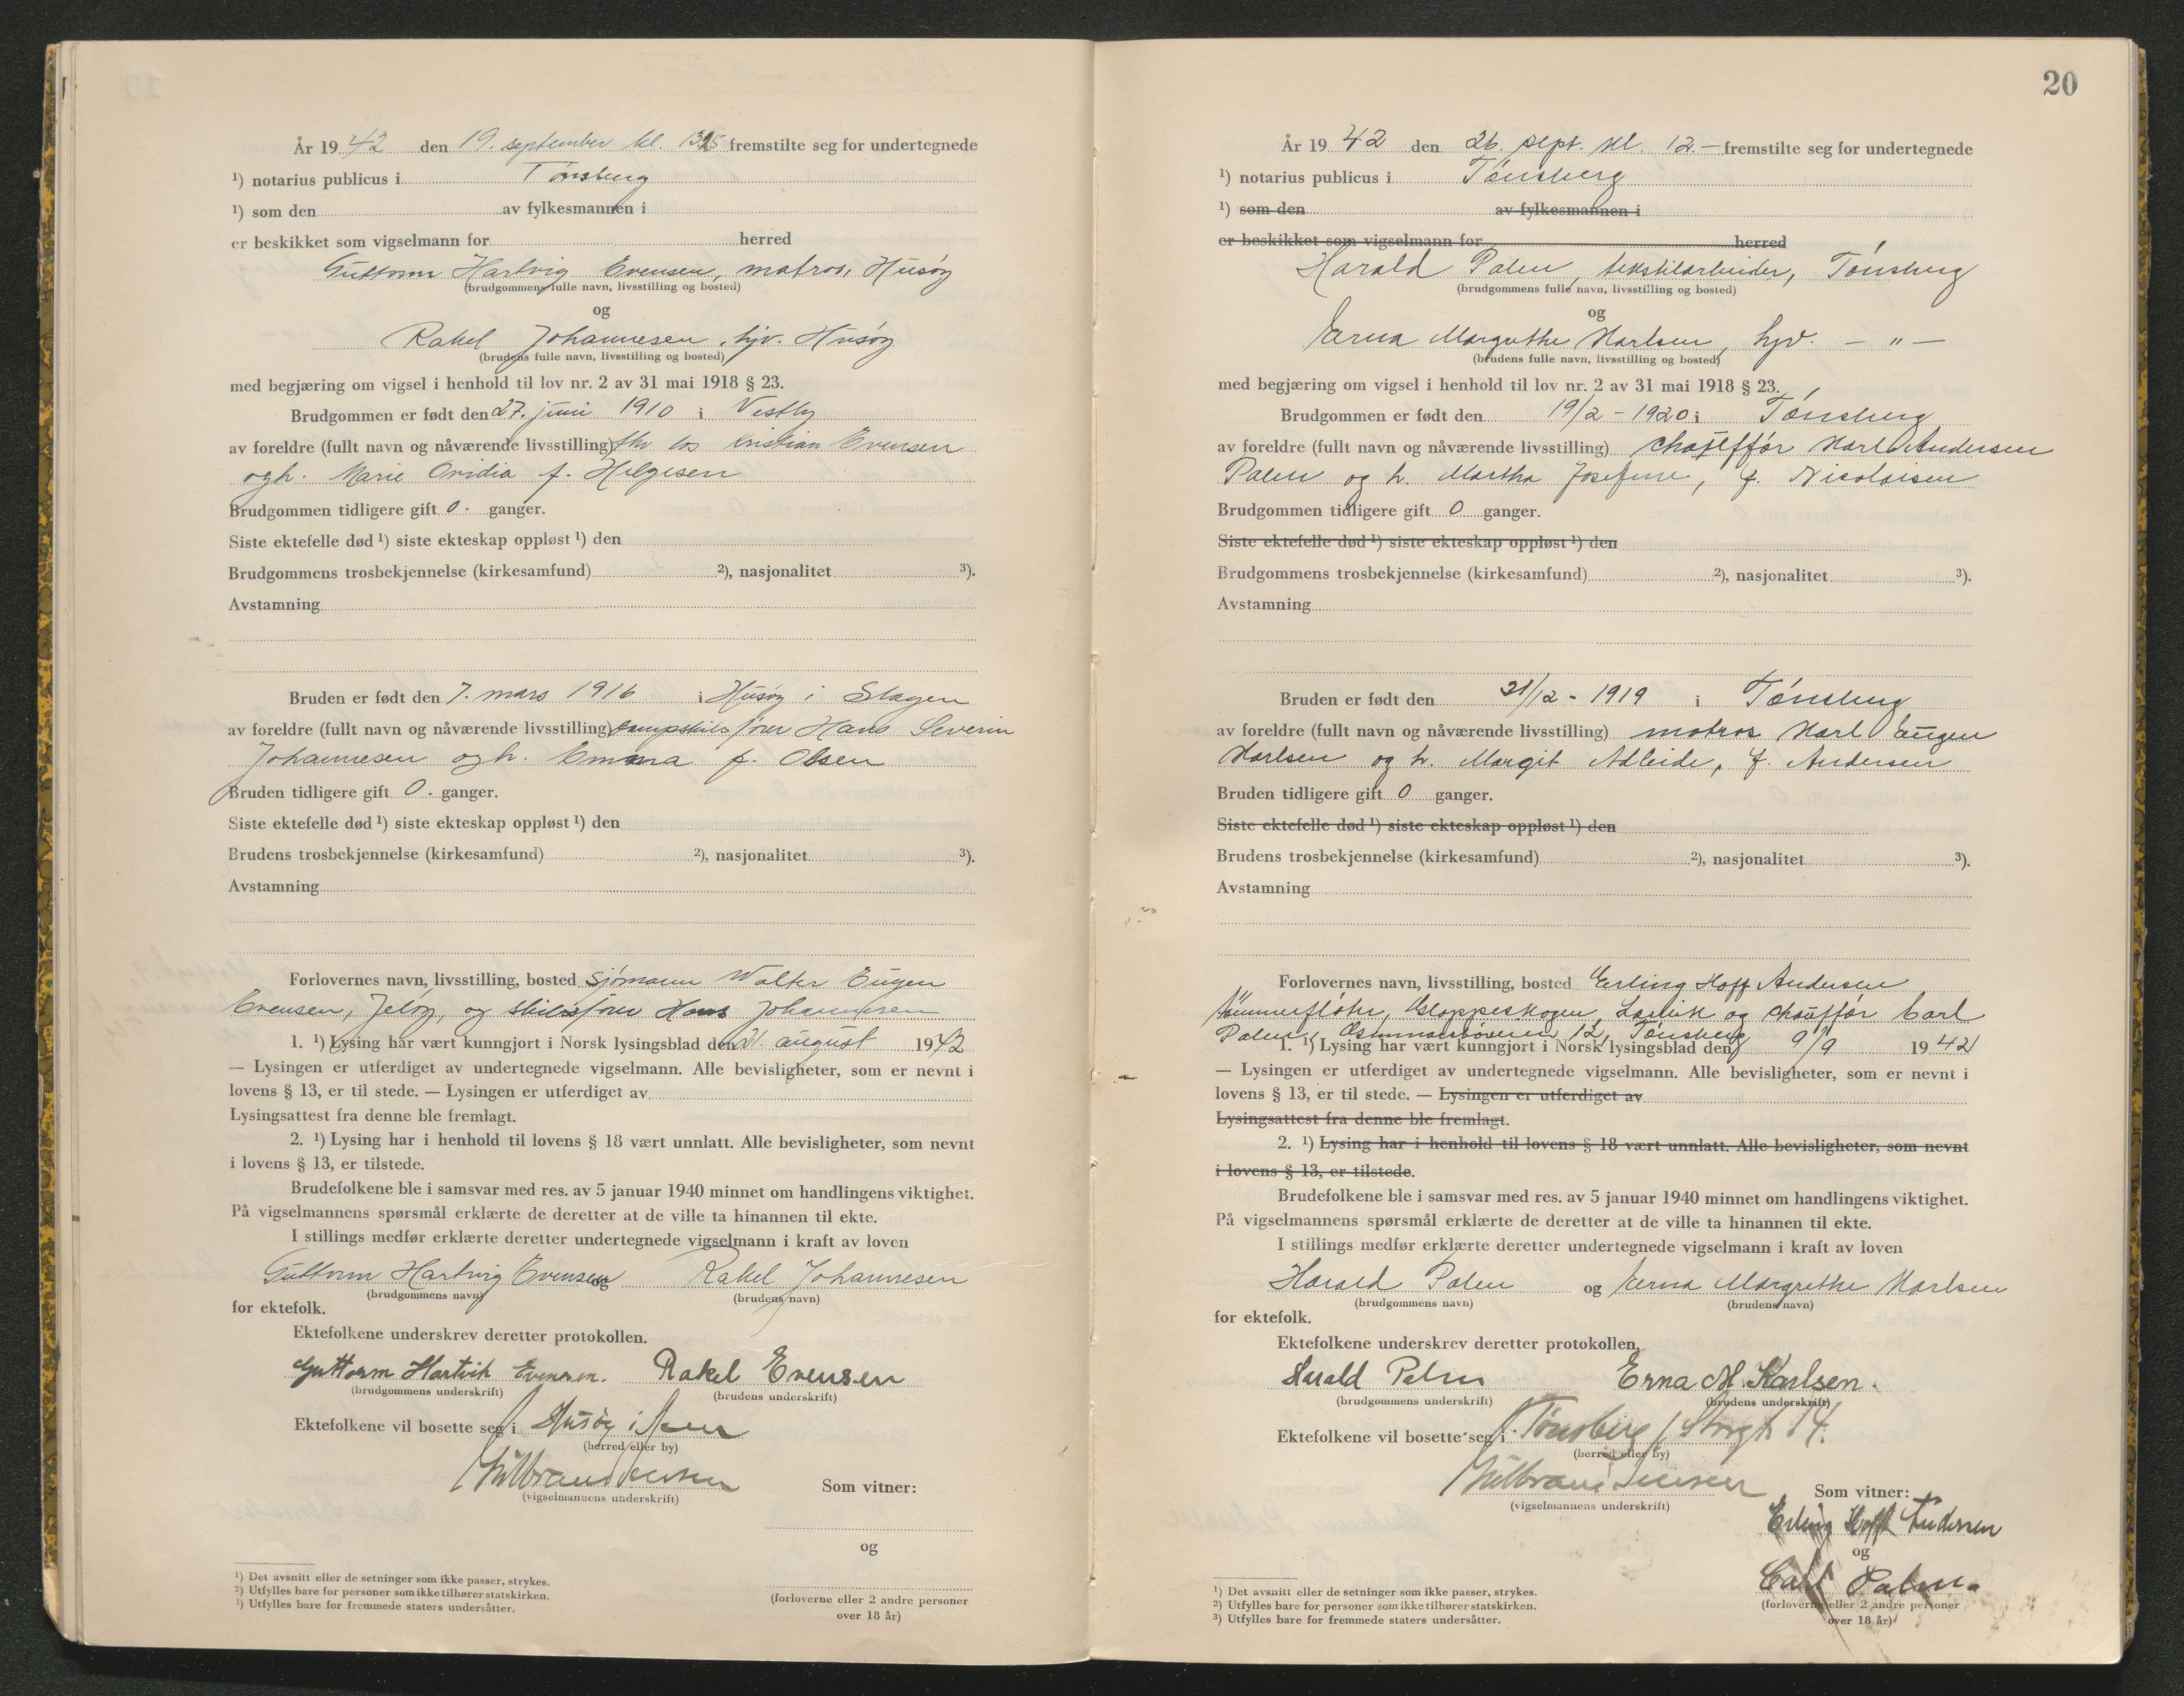 År 1942 den 19. september kl. 13 fremstilte seg for undertegnede
¹) notarius publicus i Tønsberg
¹) som den av fylkesmannen i
er beskikket som vigselmann for herred
Guttorm Hartvig Evensen, matros, Husøy
(brudgommens fulle navn, livsstilling og bosted)
og
Rakel Johannesen, hjv. Husøy
(brudens fulle navn, livsstilling og bosted)
med begjæring om vigsel i henhold til lov nr. 2 av 31 mai 1918 § 23.
Brudgommen er født den 27. juni 1910 i Vestby
av foreldre (fullt navn og nåværende livsstilling) fhv. los Kristian Evensen
og h. Marie Ovidia f. Helgesen
Brudgommen tidligere gift 0. ganger.
Siste ektefelle død ¹) siste ekteskap oppløst ¹) den
Brudgommens trosbekjennelse (kirkesamfund) ²), nasjonalitet ³).
Avstamning
Bruden er født den 7. mars 1916 i Husøy i Slagen
av foreldre (fullt navn og nåværende livsstilling) dampskibsfører Hans Severin
Johannesen og h. Emma f. Olsen
Bruden tidligere gift 0. ganger.
Siste ektefelle død ¹) siste ekteskap oppløst ¹) den
Brudens trosbekjennelse (kirkesamfund) ²), nasjonalitet ³).
Avstamning
Forlovernes navn, livsstilling, bosted sjømann Walter Eugen
Evensen, Jeløy, og skibsfører Hans Johannesen
1. ¹) Lysing har vært kunngjort i Norsk lysingsblad den 21. august 1942
— Lysingen er utferdiget av undertegnede vigselmann. Alle bevisligheter, som er nevnt i
lovens § 13, er til stede. — Lysingen er utferdiget av
Lysingsattest fra denne ble fremlagt.
2. ¹) Lysing har i henhold til lovens § 18 vært unnlatt. Alle bevisligheter, som nevnt
i lovens § 13, er tilstede.
Brudefolkene ble i samsvar med res. av 5 januar 1940 minnet om handlingens viktighet.
På vigselmannens spørsmål erklærte de deretter at de ville ta hinannen til ekte.
I stillings medfør erklærte deretter undertegnede vigselmann i kraft av loven
Guttorm Hartvig Evensen og Rakel Johannesen
(brudgommens navn) (brudens navn)
for ektefolk.
Ektefolkene underskrev deretter protokollen.
Guttorm Hartvik Evensen. Rakel Evensen
(brudgommens underskrift) (brudens underskrift)
Ektefolkene vil bosette seg i Husøy i Sem
(herred eller by)
Gulbrand Jensen
(vigselmannens underskrift)
Som vitner:
og
(forloverne eller 2 andre personer
over 18 år)
¹) Det avsnitt eller de setninger som ikke passer, strykes.
²) Utfylles bare for personer som ikke tilhører statskirken.
³) Utfylles bare for fremmede staters undersåtter.
20
År 1942 den 26. sept. kl. 12.– fremstilte seg for undertegnede
¹) notarius publicus i Tønsberg
¹) som den av fylkesmannen i
er beskikket som vigselmann for herred
Harald Palm, tekstilarbeider, Tønsberg
(brudgommens fulle navn, livsstilling og bosted)
og
Erna Margrethe Karlsen, hjv. — " —
(brudens fulle navn, livsstilling og bosted)
med begjæring om vigsel i henhold til lov nr. 2 av 31 mai 1918 § 23.
Brudgommen er født den 19/2 - 1920 i Tønsberg
av foreldre (fullt navn og nåværende livsstilling) chauffør Karl Andersen
Palm og h. Martha Josefine, f. Nicolaisen
Brudgommen tidligere gift 0 ganger.
Siste ektefelle død ¹) siste ekteskap oppløst ¹) den
Brudgommens trosbekjennelse (kirkesamfund) ²), nasjonalitet ³).
Avstamning
Bruden er født den 31/12 - 1919 i Tønsberg
av foreldre (fullt navn og nåværende livsstilling) matros Karl Eugen
Karlsen og h. Margit Adleide, f. Andersen
Bruden tidligere gift 0 ganger.
Siste ektefelle død ¹) siste ekteskap oppløst ¹) den
Brudens trosbekjennelse (kirkesamfund) ²), nasjonalitet ³).
Avstamning
Forlovernes navn, livsstilling, bosted Erling Hoff Andersen
tømmerfløter, Gloppeskogen, Larvik og chauffør Carl
Palm, 12, Tønsberg
1. ¹) Lysing har vært kunngjort i Norsk lysingsblad den 9/9 1942
— Lysingen er utferdiget av undertegnede vigselmann. Alle bevisligheter, som er nevnt i
lovens § 13, er til stede. — Lysingen er utferdiget av
Lysingsattest fra denne ble fremlagt.
2. ¹) Lysing har i henhold til lovens § 18 vært unnlatt. Alle bevisligheter, som nevnt
i lovens § 13, er tilstede.
Brudefolkene ble i samsvar med res. av 5 januar 1940 minnet om handlingens viktighet.
På vigselmannens spørsmål erklærte de deretter at de ville ta hinannen til ekte.
I stillings medfør erklærte deretter undertegnede vigselmann i kraft av loven
Harald Palm og Erna Margrethe Karlsen
(brudgommens navn) (brudens navn)
for ektefolk.
Ektefolkene underskrev deretter protokollen.
Harald Palm Erna M. Karlsen.
(brudgommens underskrift) (brudens underskrift)
Ektefolkene vil bosette seg i Tønsberg, Storgt. 14.
(herred eller by)
Gulbrand Jensen
(vigselmannens underskrift)
Som vitner:
Erling Hoff Andersen
og
Carl Palm.
(forloverne eller 2 andre personer
over 18 år)
¹) Det avsnitt eller de setninger som ikke passer, strykes.
²) Utfylles bare for personer som ikke tilhører statskirken.
³) Utfylles bare for fremmede staters undersåtter.